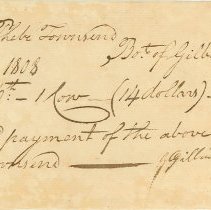 Phebe Townsend
Bot. of Gilb
1808
th - 1 Cow - (14 dollars) -
payment of the above
ownsend